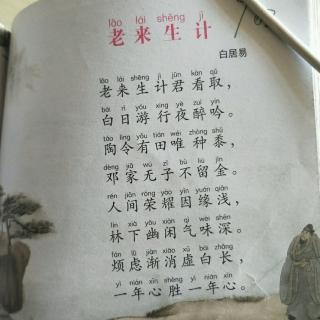 lǎo lái shēng jì
老来生计
白居易
lǎo lái shēng jì jūn kàn qǔ
老来生计君看取，
bái rì yóu xíng yè zuì yín
白日游行夜醉吟。
táo lìng yǒu tián wéi zhòng shǔ
陶令有田唯种黍，
dèng jiā wú zǐ bù liú jīn
邓家无子不留金。
rén jiān róng yào yīn yuán qiǎn
人间荣耀因缘浅，
lín xià yōu xián qì wèi shēn
林下幽闲气味深。
fán lǜ jiàn xiāo xū bái zhǎng
烦虑渐消虚白长，
yì nián xīn shèng yì nián xīn
一年心胜一年心。